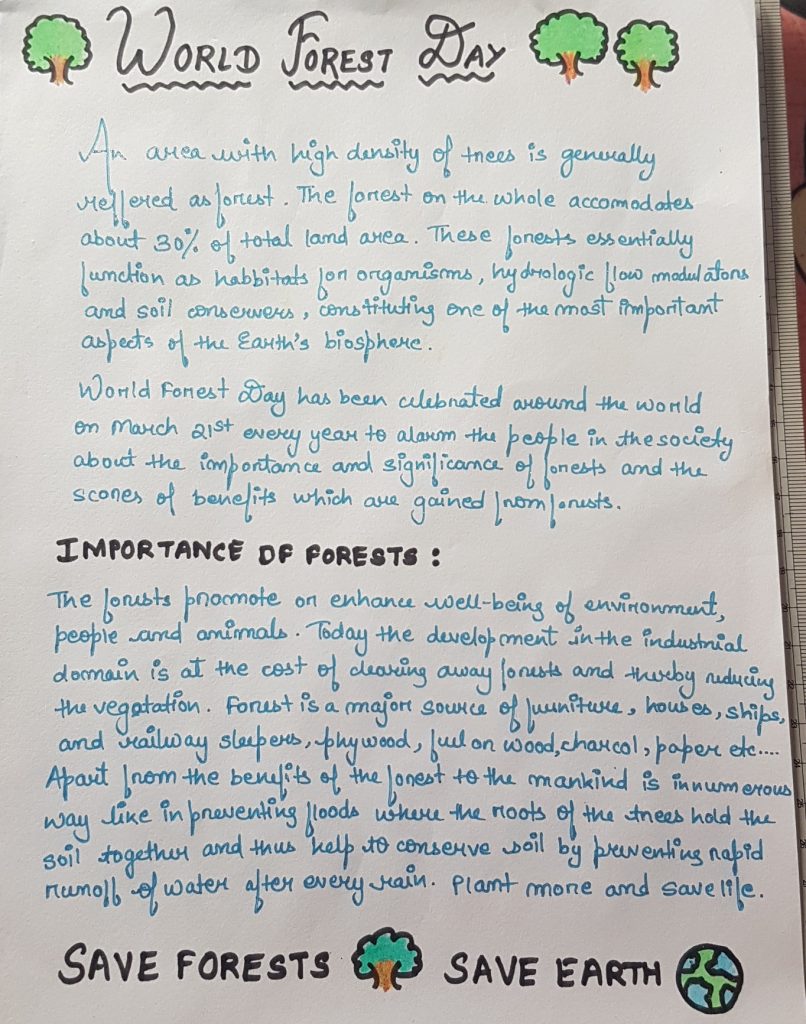 WORLD FOREST DAY
An area with high density of trees is generally
reffered as forest. The forrest on the whole accomodates
about 30% of total land area. These forests essentially
function as habbitats for organisms, hydrologic flow modulators
and soil conservers, constituting one of the most important
aspects of the Earth's biosphere.
World Forrest Day has been celebrated around the world
on March 21st every year to alarm the people in the society
about the importance and significance of forests and the
scores of benefits which are gained from forests.
IMPORTANCE OF FORESTS:
The forests promote or enhance well-being of environment,
people and animals. Today the development in the industrial
domain is at the cost of clearing away forests and thereby reducing
the vegatation. Forest is a major source of furniture, houses, ships,
and railway sleepers, plywood, fuel or wood, charcol, paper etc....
Apart from the benefits of the forest to the mankind is innumerous
way like in preventing floods where the roots of the trees hold the
soil together and thus help to conserve soil by preventing rapid
runoff of water after every rain. Plant more and save life.
SAVE FORESTS SAVE EARTH